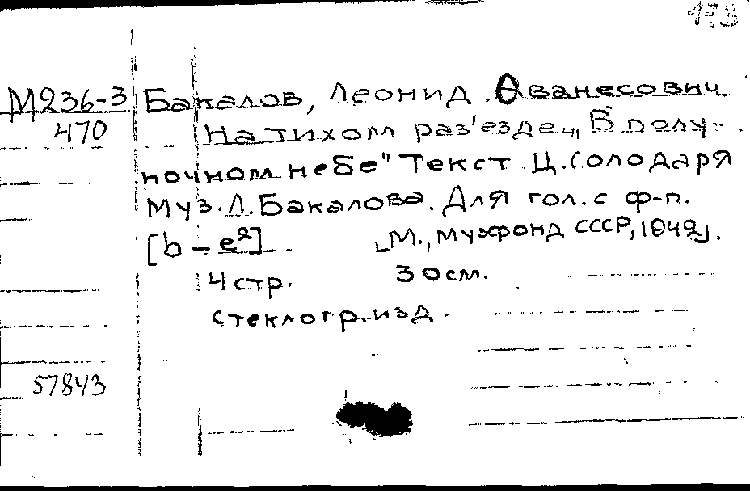 173
М236-3 Бакалов, Леонид Ованесович
470 На тихом раз'езде „В полу-
ночном небе" Текст Ц. Солодаря
Муз. Л. Бакалова. Для гол. с ф-п.
[b – e²] [М., Музфонд СССР, 1949].
4 стр. 30 см.
стеклогр. изд.
57843